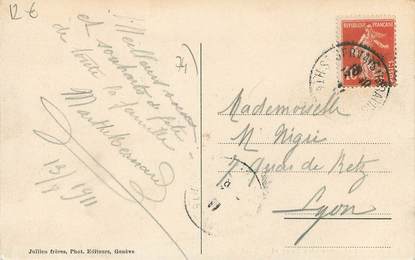 12 €
74
Meilleurs vœux
et souhaits de fête
de toute la famille
Marthe
13/7 1911
REPUBLIQUE FRANÇAISE
10
Mademoiselle
M Nigri
7 Quai de Retz
Lyon
Jullien frères, Phot. Editeurs, Genève